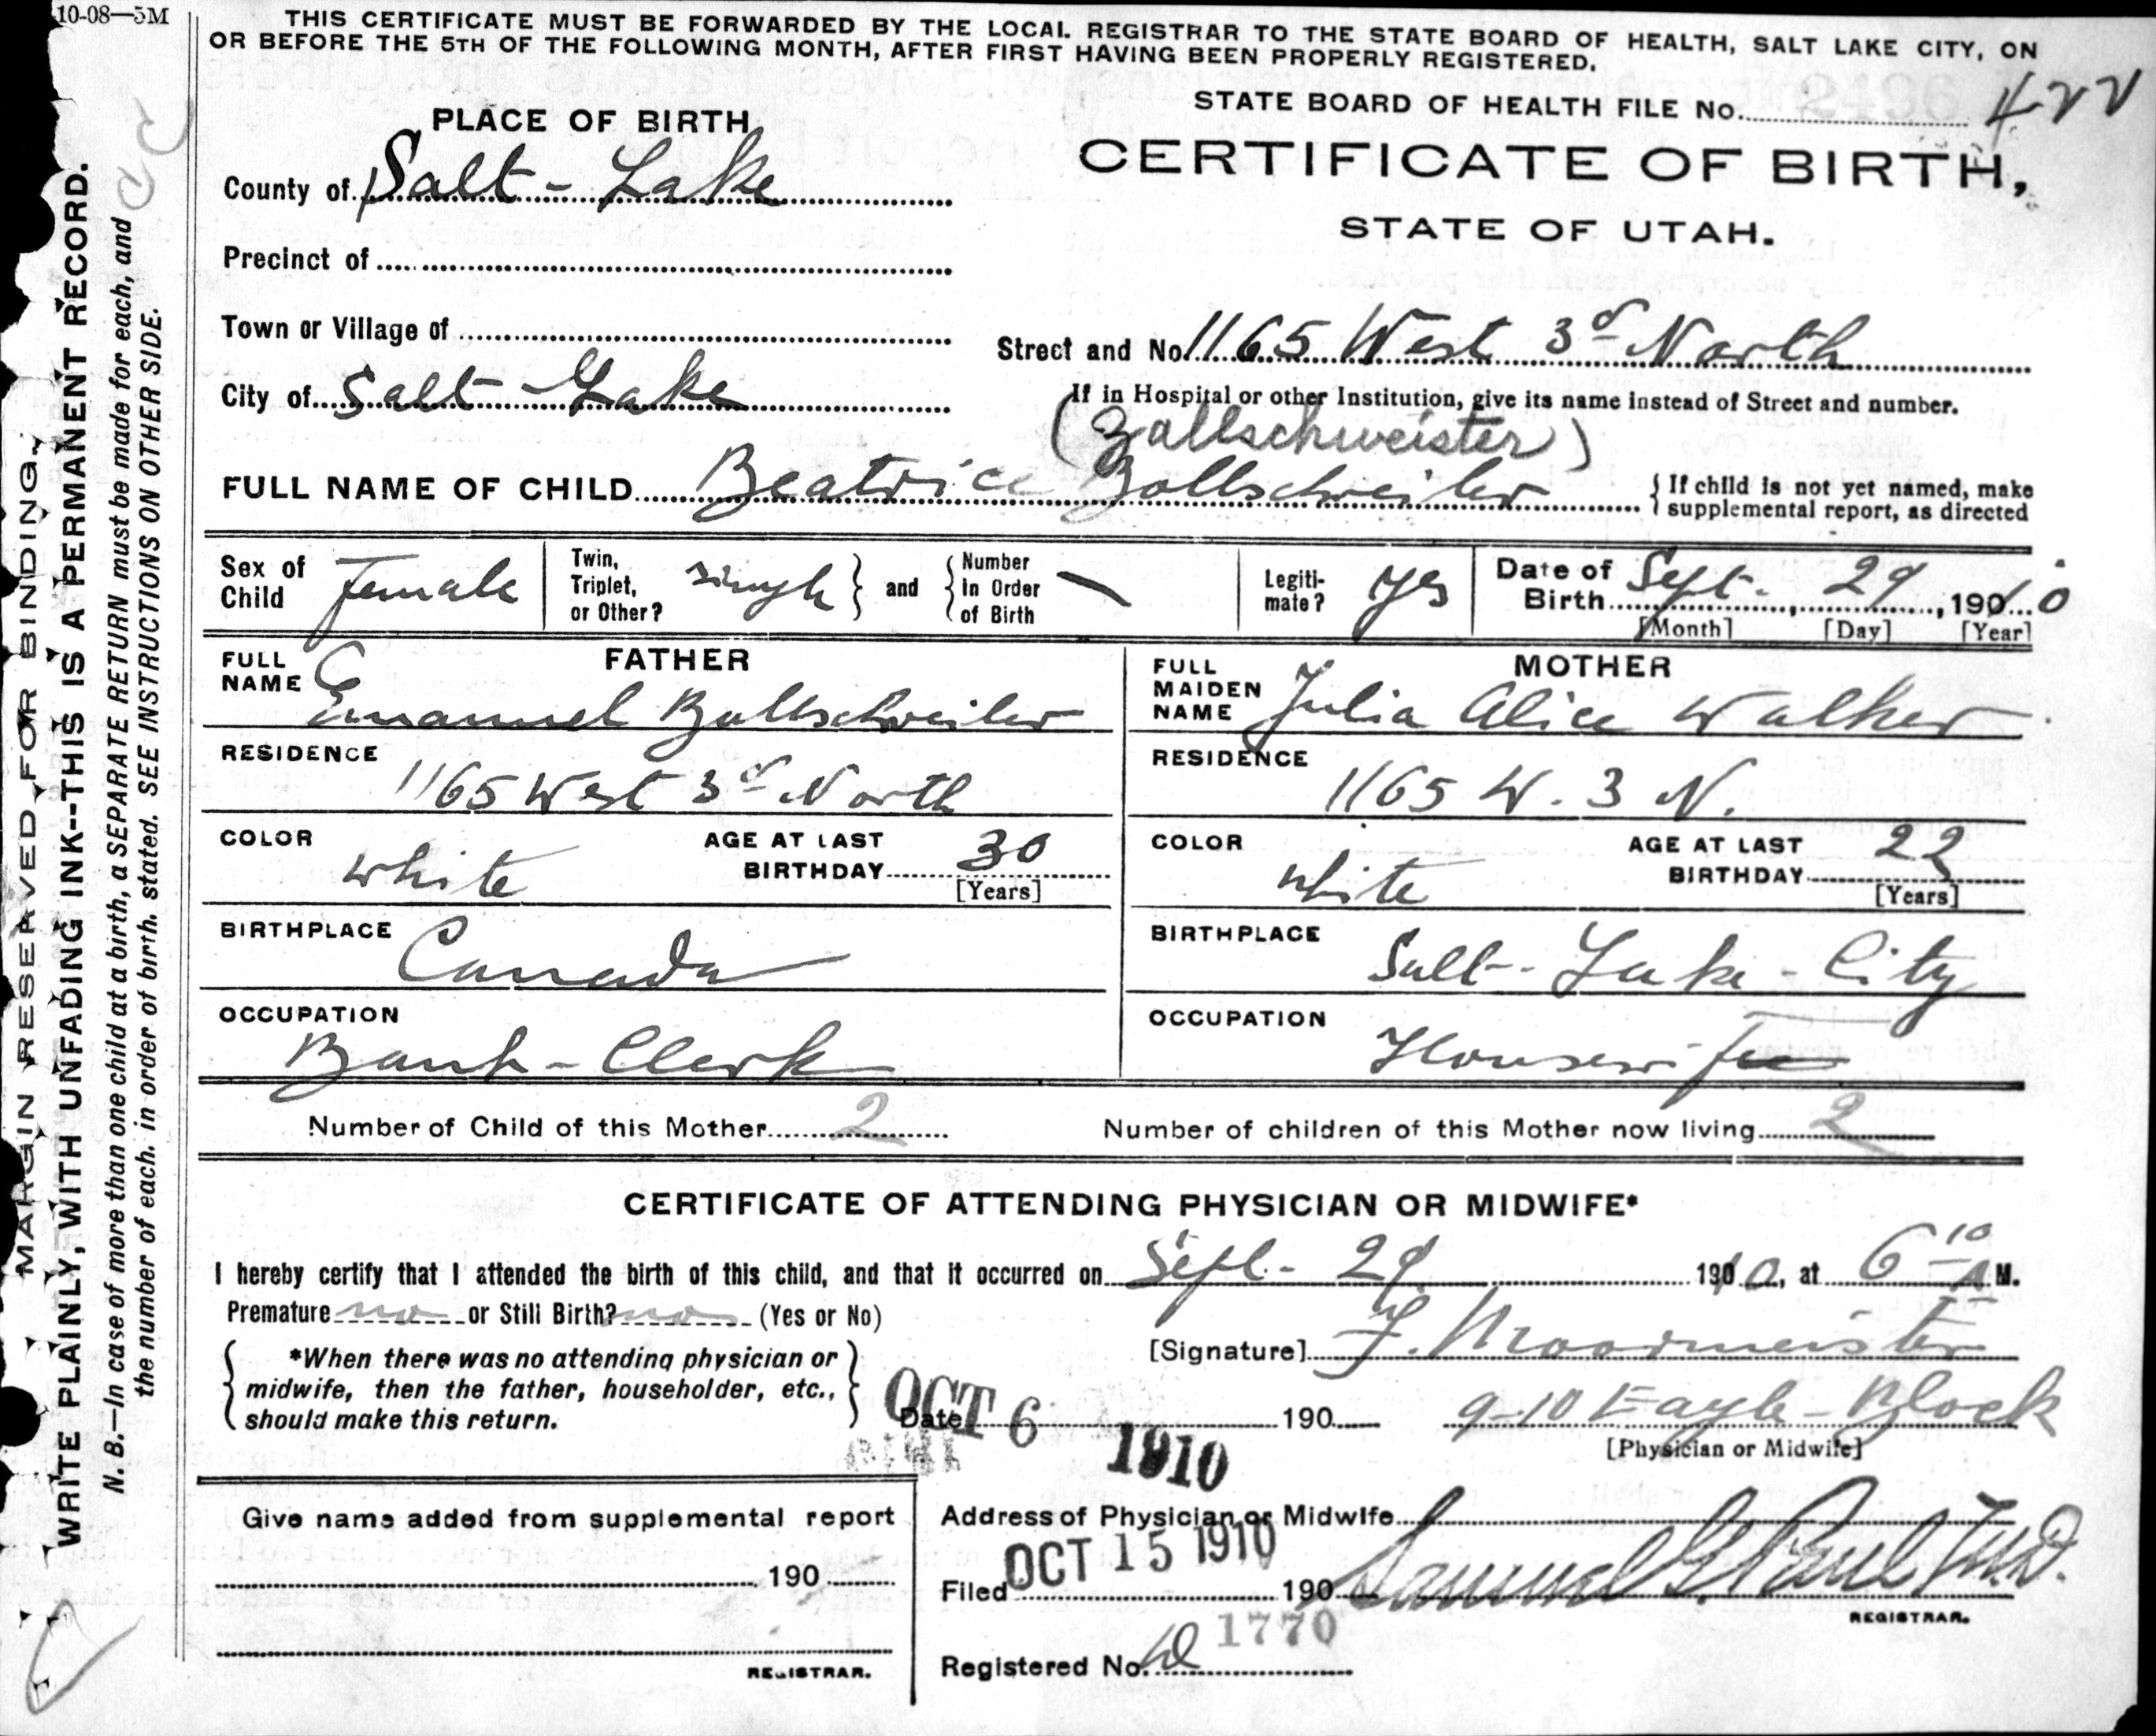 10-08—5M
THIS CERTIFICATE MUST BE FORWARDED BY THE LOCAL REGISTRAR TO THE STATE BOARD OF HEALTH, SALT LAKE CITY, ON
OR BEFORE THE 5TH OF THE FOLLOWING MONTH, AFTER FIRST HAVING BEEN PROPERLY REGISTERED.
STATE BOARD OF HEALTH FILE No. 2496 422
PLACE OF BIRTH
CERTIFICATE OF BIRTH,
STATE OF UTAH.
County of Salt-Lake
Precinct of
Town or Village of
Street and No. 1165 West 3d North
City of Salt-Lake
If in Hospital or other Institution, give its name instead of Street and number.
(Zallschweister)
FULL NAME OF CHILD Beatrice Zollschweiler
{ If child is not yet named, make
supplemental report, as directed
Sex of Child female
Twin, Triplet, or Other? single } and { Number in Order of Birth
Legitimate? yes
Date of Birth Sept. 29, 1910
[Month] [Day] [Year]
FATHER
FULL NAME Emanuel Zollschweiler
RESIDENCE 1165 West 3d North
COLOR white
AGE AT LAST BIRTHDAY 30
[Years]
BIRTHPLACE Canada
OCCUPATION Bank-Clerk
MOTHER
FULL MAIDEN NAME Julia Alice Walker
RESIDENCE 1165 W. 3 N.
COLOR white
AGE AT LAST BIRTHDAY 22
[Years]
BIRTHPLACE Salt-Lake-City
OCCUPATION Housewife
Number of Child of this Mother 2
Number of children of this Mother now living 2
CERTIFICATE OF ATTENDING PHYSICIAN OR MIDWIFE*
I hereby certify that I attended the birth of this child, and that it occurred on Sept. 29 1910, at 6 10 A M.
Premature no or Still Birth? no (Yes or No)
{ *When there was no attending physician or
midwife, then the father, householder, etc.,
should make this return. }
[Signature] F. Moormeister
Date OCT 6 1910 190
9-10 Eagle-Block
[Physician or Midwife]
Give name added from supplemental report
190
REGISTRAR.
Address of Physician or Midwife
Filed OCT 15 1910 190 Samuel G. Paul M.D.
REGISTRAR.
Registered No. 1770
MARGIN RESERVED FOR BINDING.
WRITE PLAINLY, WITH UNFADING INK--THIS IS A PERMANENT RECORD.
N. B.—In case of more than one child at a birth, a SEPARATE RETURN must be made for each, and
the number of each. in order of birth. stated. SEE INSTRUCTIONS ON OTHER SIDE.